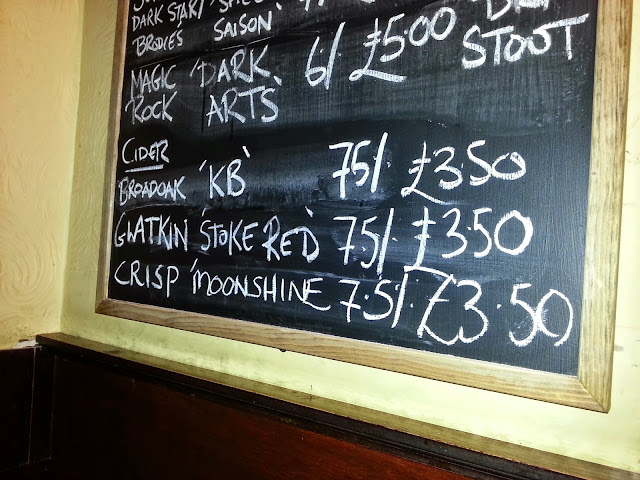 DARK STAR/
BRODIES SAISON'
MAGIC 'DARK 6/ £5.00 STOUT
ROCK ARTS'
CIDER
BROADOAK 'KB' 75/ £3.50
GWATKIN 'STOKE RED' 75/. £3.50
CRISP 'MOONSHINE 7.5/. £3.50